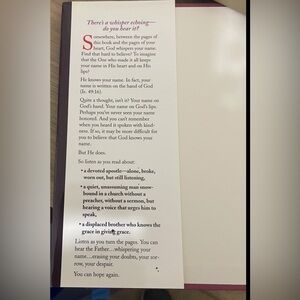 There's a whisper echoning—
do you hear it?
Somewhere, between the pages of
this book and the pages of your
heart, God whispers your name.
Find that hard to believe? To imagine
that the One who made it all keeps
your name in His heart and on His
lips?
He knows your name. In fact, your
name is written on the hand of God
(Is. 49:16).
Quite a thought, isn't it? Your name on
God's hand. Your name on God's lips.
Perhaps you've never seen your name
honored. And you can't remember
when you heard it spoken with kind-
ness. If so, it may be more difficult for
you to believe that God knows your
name.
But He does.
So listen as you read about:
• a devoted apostle—alone, broke,
worn out, but still listening,
• a quiet, unassuming man snow-
bound in a church without a
preacher, without a sermon, but
hearing a voice that urges him to
speak,
• a displaced brother who knows the
grace in giving grace.
Listen as you turn the pages. You can
hear the Father. . .whispering your
name. . .erasing your doubts, your sor-
row, your despair.
You can hope again.